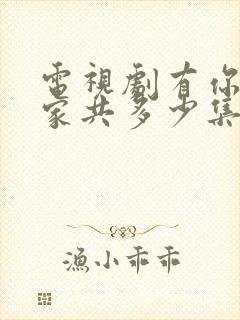 電視劇有你
家共多少集
漁小乖乖